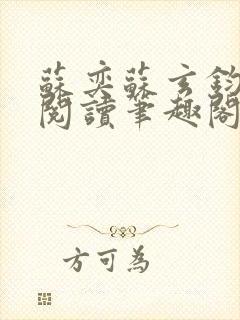 蘇奕蘇玄鈞
閱讀筆趣閣
方可為